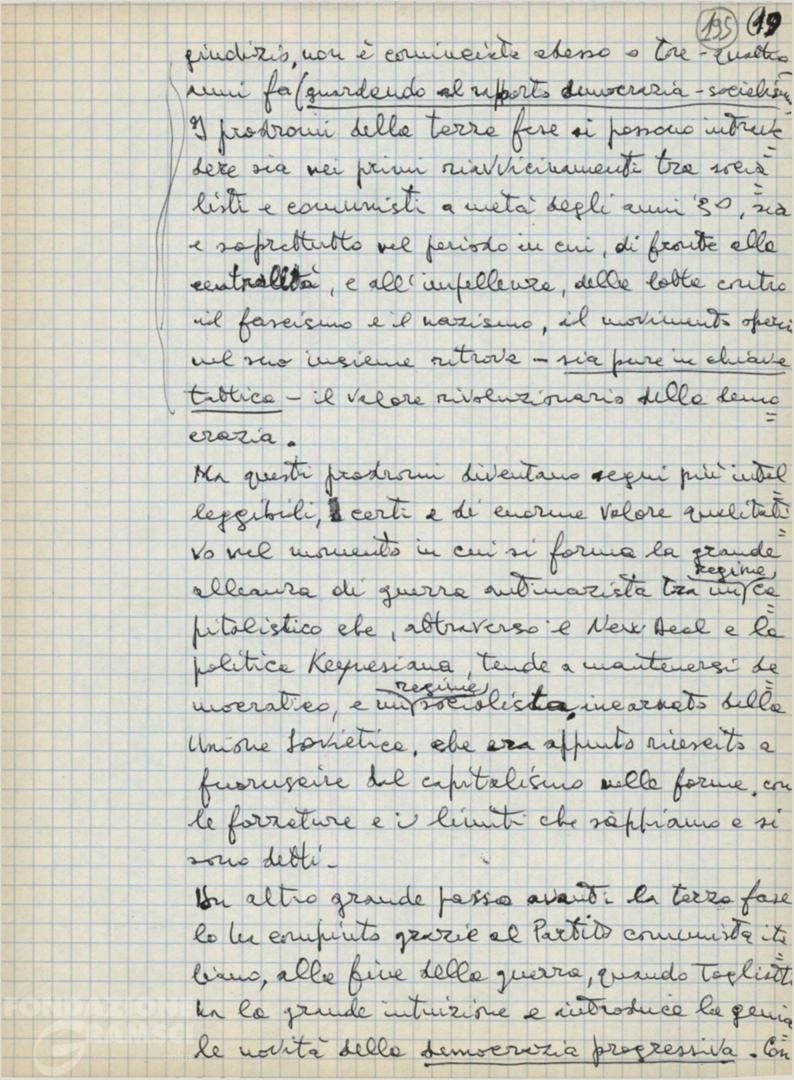 195 19
giudizio, non è cominciata adesso o tre-quattro
anni fa (guardando al rapporto democrazia-socialismo.
I prodromi della terza fase si possono intrav=
dere sia nei primi riavvicinamenti tra socia=
listi e comunisti a metà degli anni '30, sia
e soprattutto nel periodo in cui, di fronte alla
centralità, e all'impellenza, della lotta contro
il fascismo e il nazismo, il movimento operaio
nel suo insieme ritrova – sia pure in chiave
tattica – il valore rivoluzionario della demo=
crazia.
Ma questi prodromi diventano segni più intel=
leggibili, certi e di enorme valore qualitati=
vo nel momento in cui si forma la grande
alleanza di guerra antinazista tra un regime ca=
pitalistico che, attraverso il New Deal e la
politica Keynesiana, tende a mantenersi de=
mocratico, e un regime socialista, incarnato dalla
Unione Sovietica, che era appunto riuscita a
fuoruscire dal capitalismo nelle forme, con
le forzature e i limiti che sappiamo e si
sono detti –
Un altro grande passo avanti la terza fase
lo ha compiuto grazie al Partito comunista ita=
liano, alla fine della guerra, quando Togliatti
ha la grande intuizione e introduce la genia=
le novità della democrazia progressiva. Con
FONDAZIONE
GRAMSCI